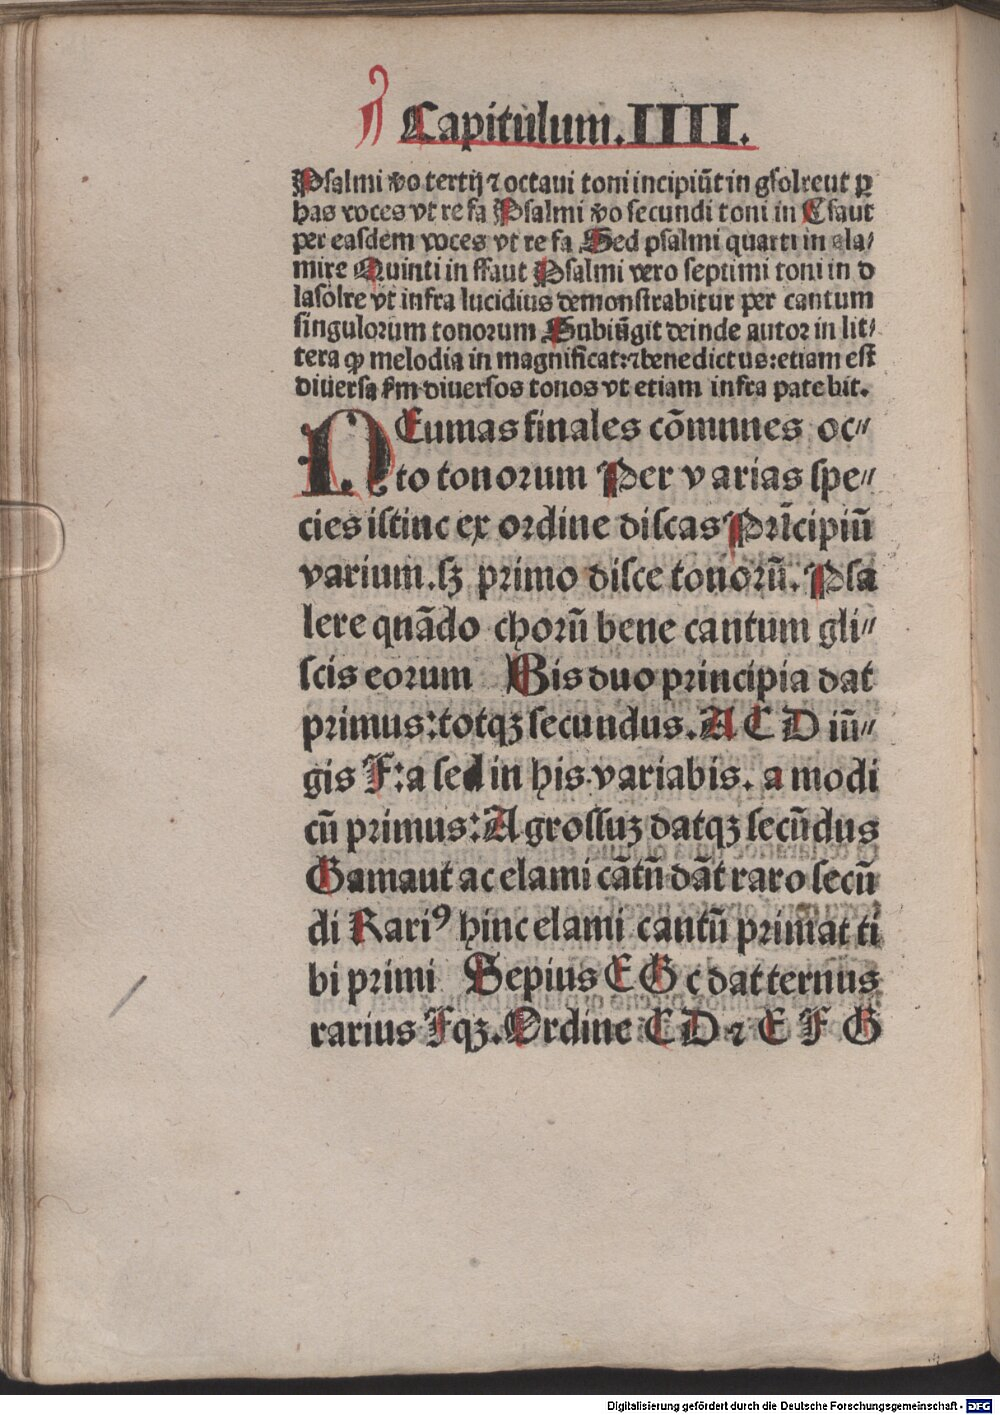 Capitulum.IIII.
Psalmi v̾o tertij ⁊ octaui toni incipiūt in gsolreut ꝑ
has voces vt re fa Psalmi v̾o secundi toni in Cfaut
per easdem voces vt re fa Sed psalmi quarti in ala/
mire Quinti in ffaut Psalmi vero septimi toni in d
lasolre vt infra lucidius demonstrabitur per cantum
singulorum tonorum Subiūgit deinde autor in lit/
tera ꝙ melodia in magnificat:⁊benedictus:etiam est
diuersa s̄m diuersos tonos vt etiam infra patebit.
NEumas finales cōmunes oc//
to tonorum Per varias spe//
cies istinc ex ordine discas Prīcipiū
varium.sꝫ primo disce tonorū. Psa
lere qnādo chorū bene cantum gli//
scis eorum Bis duo principia dat
primus:totqꝫ secundus. A C D iū//
gis F:a sed in his variabis. a modi
cū primus:A grossuꝫ datqꝫ secūdus
Gamaut ac elami cātū dāt raro secū
di Rariꝰ hinc elami cantū primat ti
bi primi Sepius E G c dat ternus
rarius Fqꝫ. Ordine C D ⁊ E F G
Digitalisierung gefördert durch die Deutsche Forschungsgemeinschaft - DFG